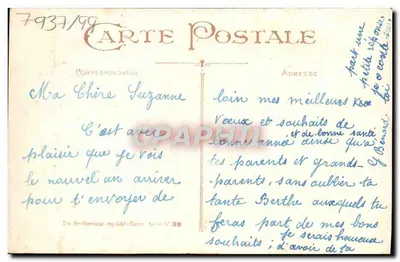 7937/99
CARTE POSTALE
CORRESPONDANCE
ADRESSE
Ma Chère Suzanne
C'est avec
plaisir que je vois
le nouvel an arriver
pour t'envoyer de
loin mes meilleurs
Vœux et souhaits de
et de bonne santé
bonne année ainsi qu'à
tes parents et grands-
parents, sans oublier ta
tante Berthe auxquels tu
feras part de mes bons
souhaits; je serais heureux
d'avoir de ta
part une
petite réponse